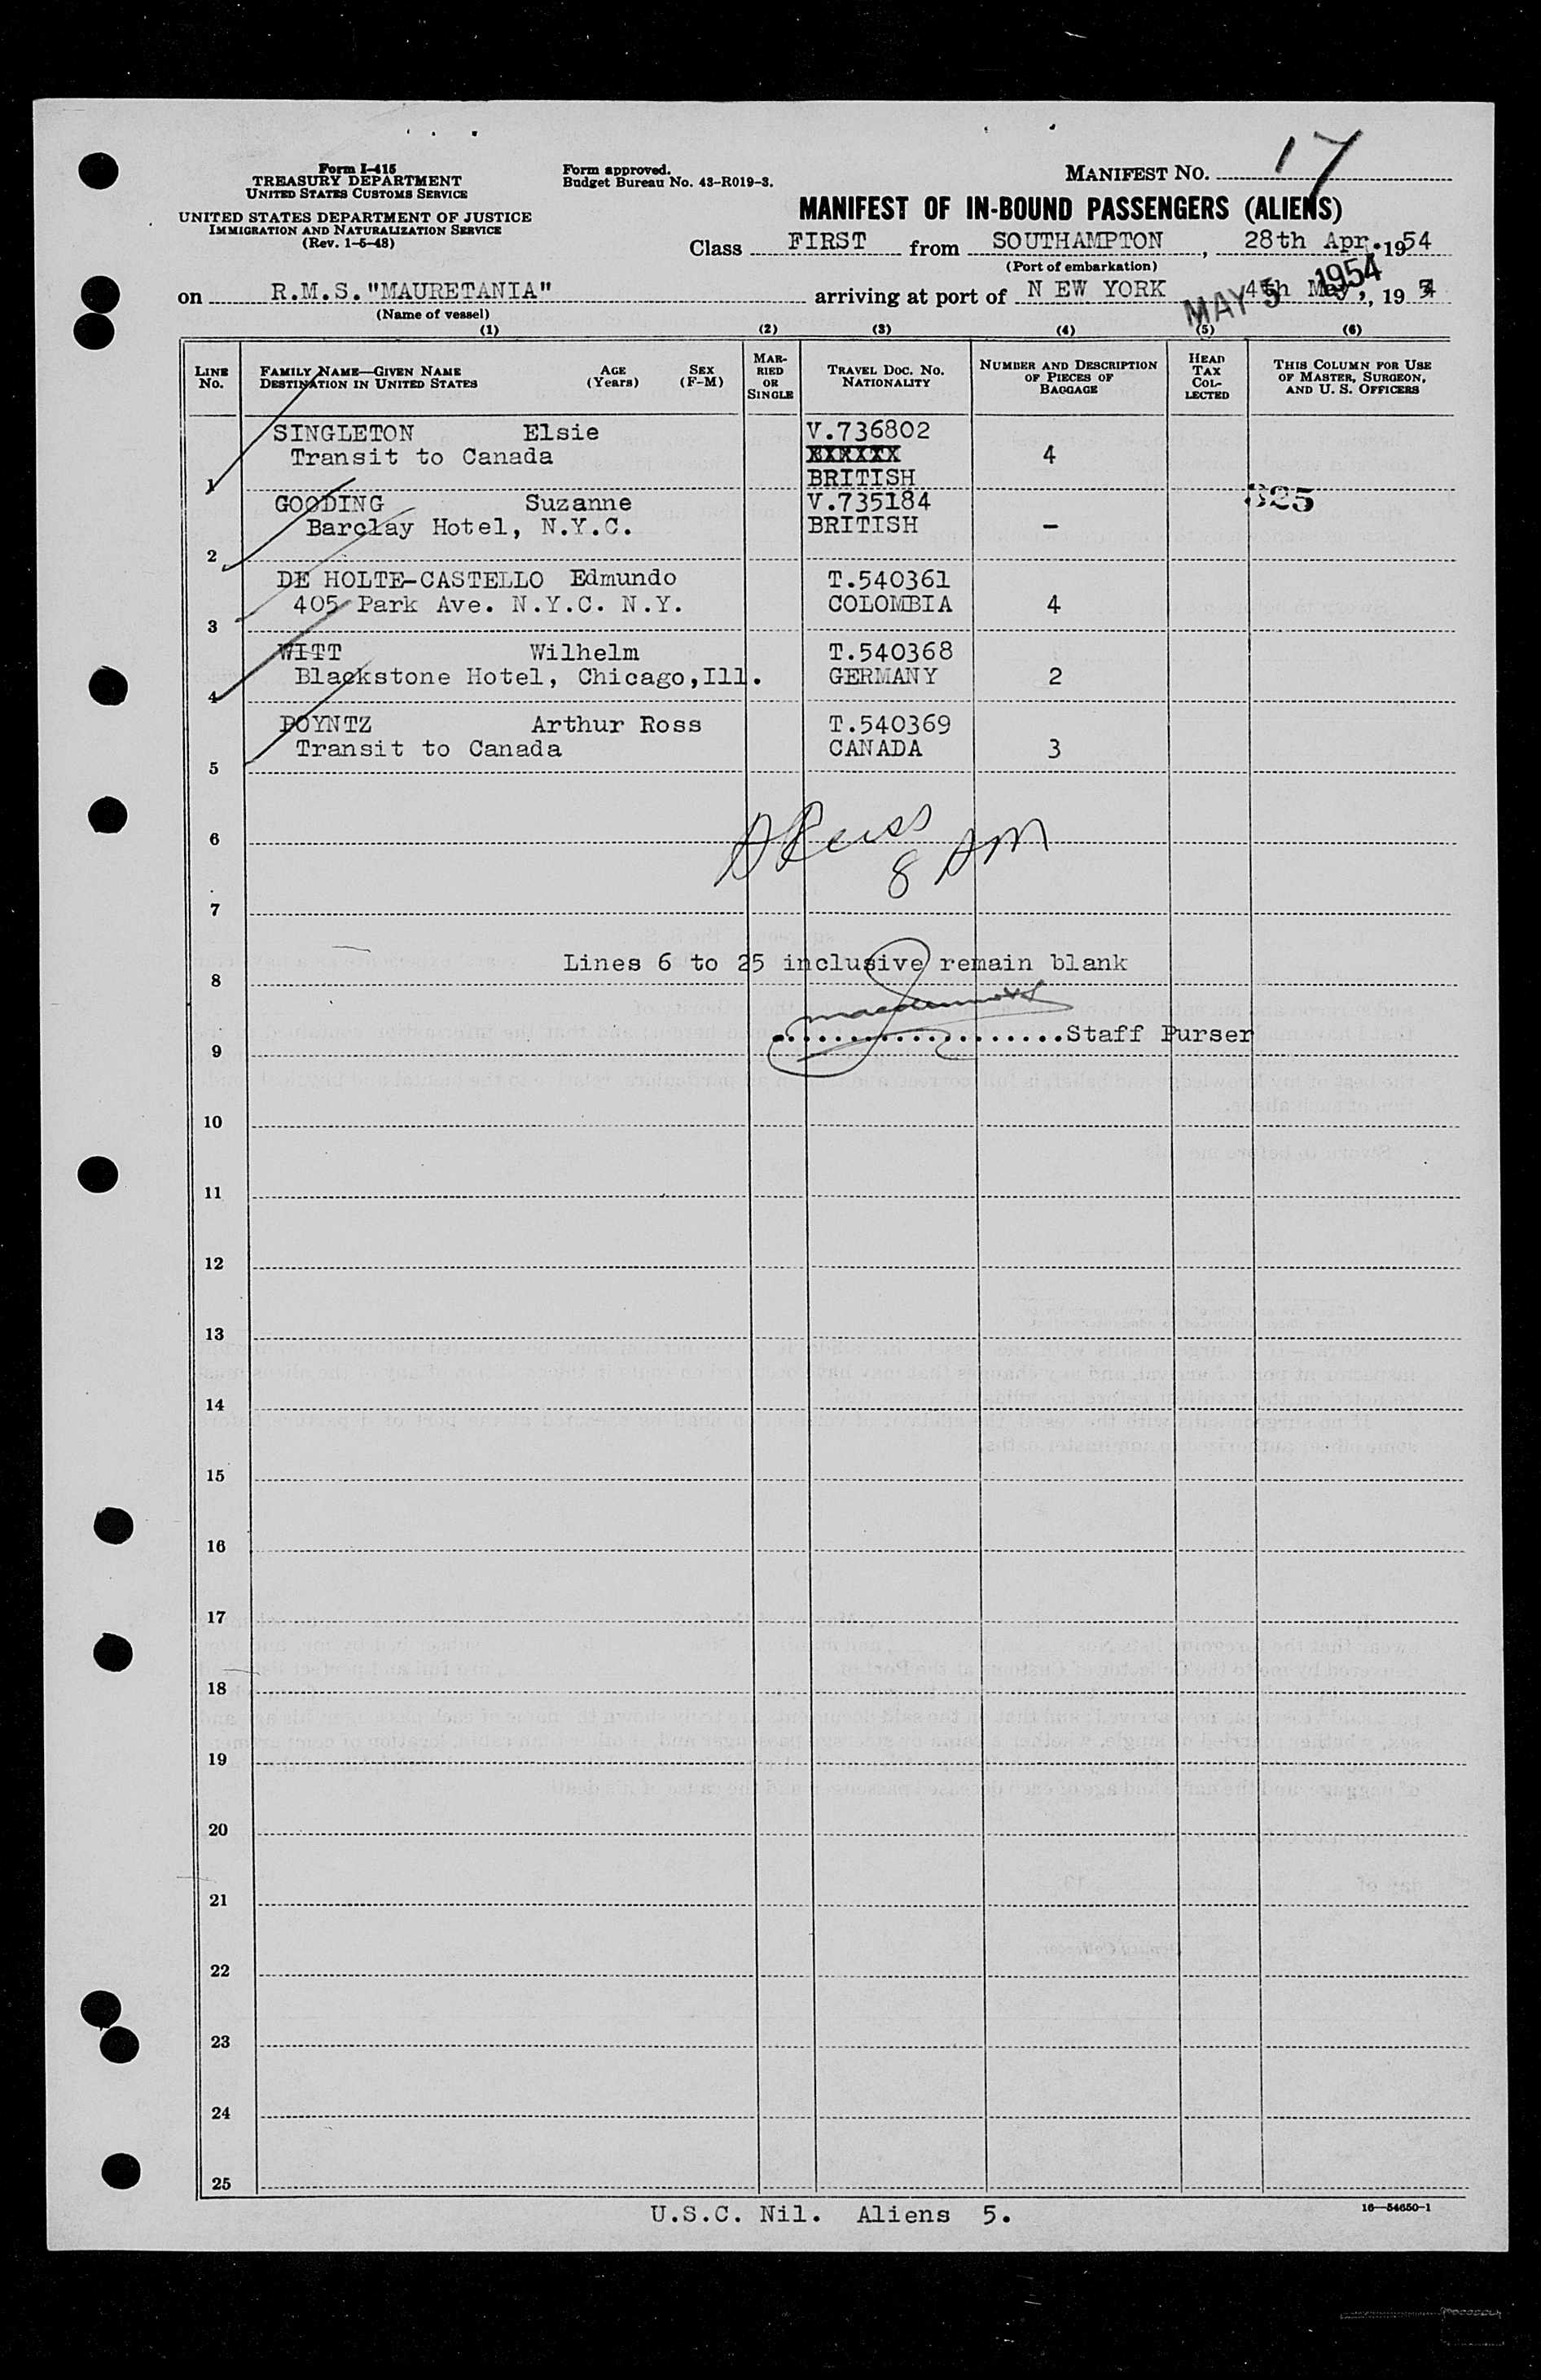 MANIFEST NO. 17
Form I-415
TREASURY DEPARTMENT
UNITED STATES CUSTOMS SERVICE
UNITED STATES DEPARTMENT OF JUSTICE
IMMIGRATION AND NATURALIZATION SERVICE
(Rev. 1-5-48)
Form approved.
Budget Bureau No. 43-R019-3.
MANIFEST OF IN-BOUND PASSENGERS (ALIENS)
Class FIRST from SOUTHAMPTON, 28th Apr. 1954
(Port of embarkation)
on R.M.S. "MAURETANIA" arriving at port of NEW YORK 4th May, 1954
MAY 5 1954
(Name of vessel)
(1) (2) (3) (4) (5) (6)
LINE No. FAMILY NAME—GIVEN NAME DESTINATION IN UNITED STATES AGE (Years) SEX (F-M) MARRIED OR SINGLE TRAVEL DOC. NO. NATIONALITY NUMBER AND DESCRIPTION OF PIECES OF BAGGAGE HEAD TAX COLLECTED THIS COLUMN FOR USE OF MASTER, SURGEON, AND U. S. OFFICERS
SINGLETON Elsie V.736802
Transit to Canada XXXXXX 4
1 BRITISH
GOODING Suzanne V.735184 325
Barclay Hotel, N.Y.C. BRITISH -
2
DE HOLTE-CASTELLO Edmundo T.540361
405 Park Ave. N.Y.C. N.Y. COLOMBIA 4
3
WITT Wilhelm T.540368
Blackstone Hotel, Chicago,Ill. GERMANY 2
4
POYNTZ Arthur Ross T.540369
Transit to Canada CANADA 3
5
6
8 AM
7
Lines 6 to 25 inclusive remain blank
8
....................Staff Purser
9
10
11
12
13
14
15
16
17
18
19
20
21
22
23
24
25
U.S.C. Nil. Aliens 5.
16—54650-1